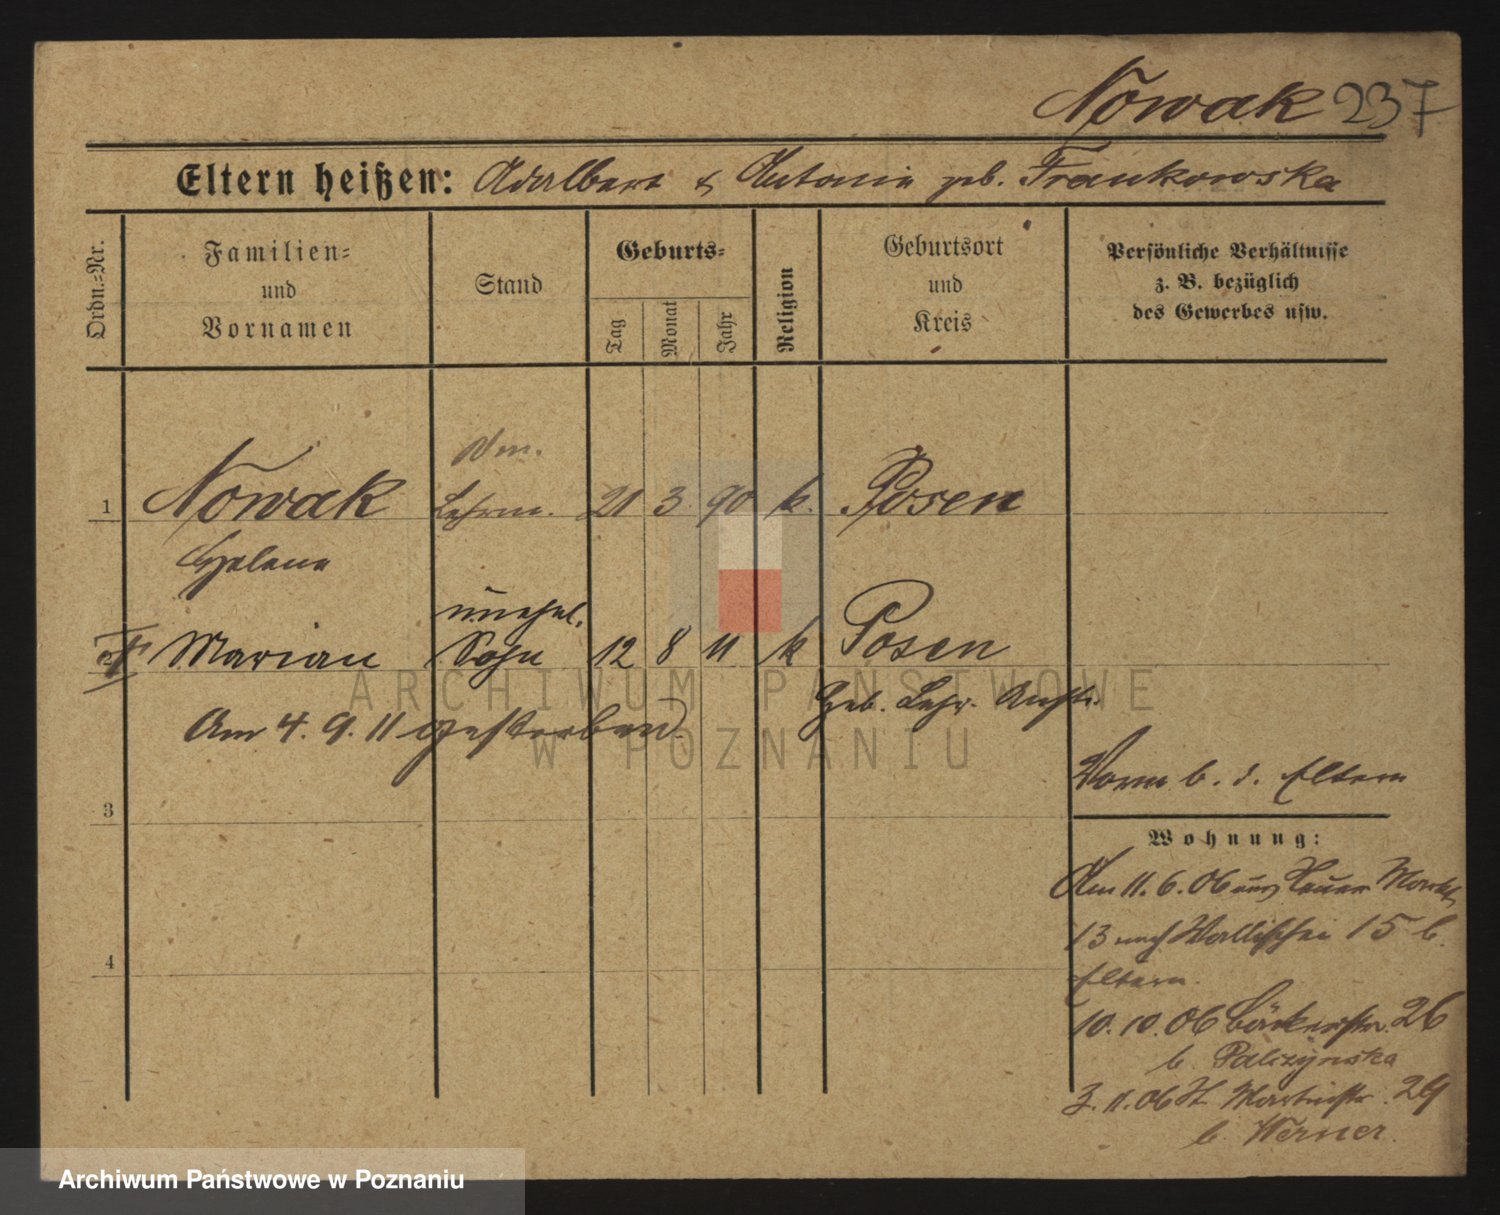 Nowak 237
Eltern heißen: Adalbert & Antonie geb. Frankowska
Ordn.=Nr.
Familien=
und
Vornamen
Stand
Geburts=
Tag
Monat
Jahr
Religion
Geburtsort
und
Kreis
Persönliche Verhältnisse
z. B. bezüglich
des Gewerbes usw.
1 Nowak Lehrm. 21 3. 90 k. Posen
Helene
unehel.
2 Marian Sohn 12 8 11 k Posen
Geb. Lehr. Anst.
Am 4. 9. 11 gestorben.
3
4
Vorm b. d. Eltern
Wohnung:
Am 11. 6. 06 aus Neuer Markt
13 nach Wallischei 15 b.
Eltern.
10. 10. 06 Bäckerstr. 26
b. Palczynska
3. 11. 06 St Martinstr. 29
b. Werner.
ARCHIWUM PAŃSTWOWE
W POZNANIU
Archiwum Państwowe w Poznaniu